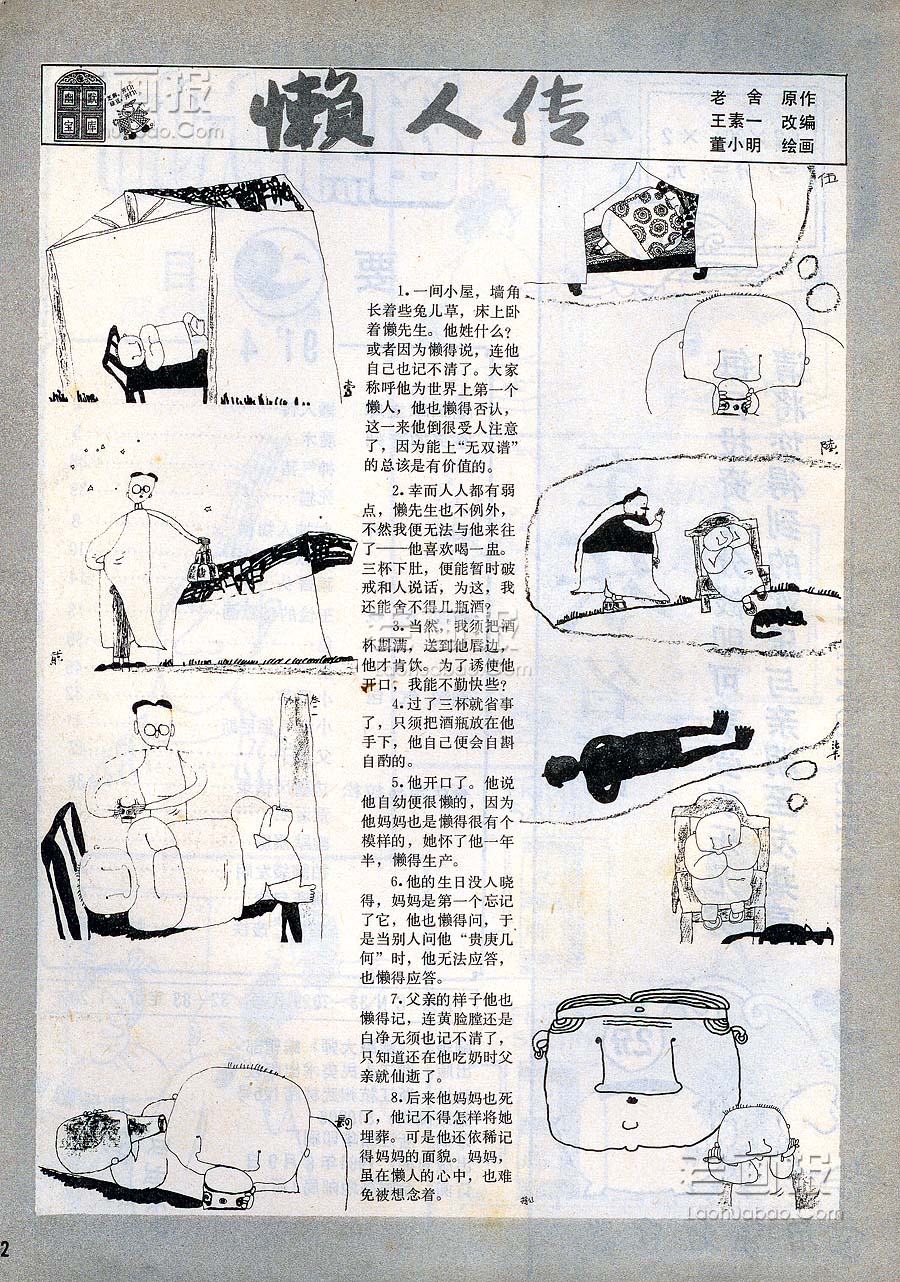 幽默
宝库
老画报
Laohuabao.Com
懒人传
老舍 原作
王素一 改编
董小明 绘画
1.一间小屋，墙角
长着些兔儿草，床上卧
着懒先生。他姓什么？
或者因为懒得说，连他
自己也记不清了。大家
称呼他为世界上第一个
懒人，他也懒得否认，
这一来他倒很受人注意
了，因为能上“无双谱”
的总该是有价值的。
2.幸而人人都有弱
点，懒先生也不例外，
不然我便无法与他来往
了——他喜欢喝一盅。
三杯下肚，便能暂时破
戒和人说话，为这，我
还能舍不得几瓶酒？
3.当然，我须把酒
杯斟满，送到他唇边，
他才肯饮。为了诱使他
开口，我能不勤快些？
4.过了三杯就省事
了，只须把酒瓶放在他
手下，他自己便会自斟
自酌的。
5.他开口了。他说
他自幼便很懒的，因为
他妈妈也是懒得很有个
模样的，她怀了他一年
半，懒得生产。
6.他的生日没人晓
得，妈妈是第一个忘记
了它，他也懒得问，于
是当别人问他“贵庚几
何”时，他无法应答，
也懒得应答。
7.父亲的样子他也
懒得记，连黄脸膛还是
白净无须也记不清了，
只知道还在他吃奶时父
亲就仙逝了。
8.后来他妈妈也死
了，他记不得怎样将她
埋葬。可是他还依稀记
得妈妈的面貌。妈妈，
虽在懒人的心中，也难
免被想念着。
壹
贰
叁
肆
伍
陆
柒
捌
老画报
Laohuabao.Com
2